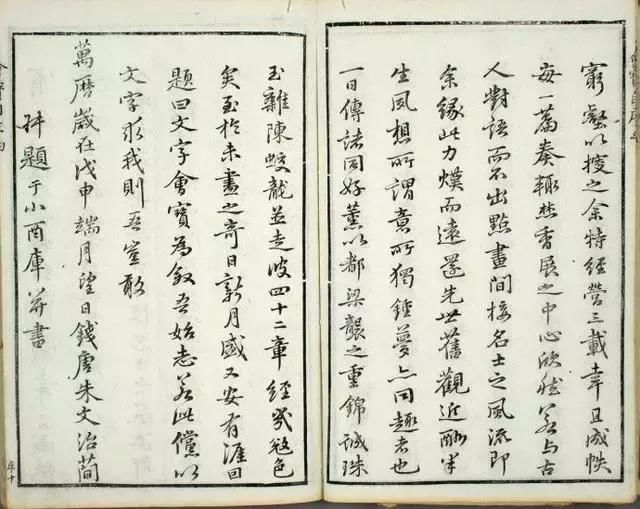 窮壑以搜之余特經營三載幸且成帙
每一篇奏輒焚香展之中心欣然若与古
人對語而不出點畫間接名士之風流即
余緣此力糢而遠還先世舊觀近酬半
生風想所謂意所獨鍾夢亦同趣者也
一日傳諸同好薰以都梁襲之重錦誠珠
玉雜陳蛟龍並走彼四十二章經覺遜色
矣至於未盡之奇日新月盛又安有涯回
題曰文字會寶為敘吾始志若此儻以
文字求我則吾豈敢
萬曆歲在戊申端月望日錢唐朱文治簡
叔題于小酉庫并書
序十